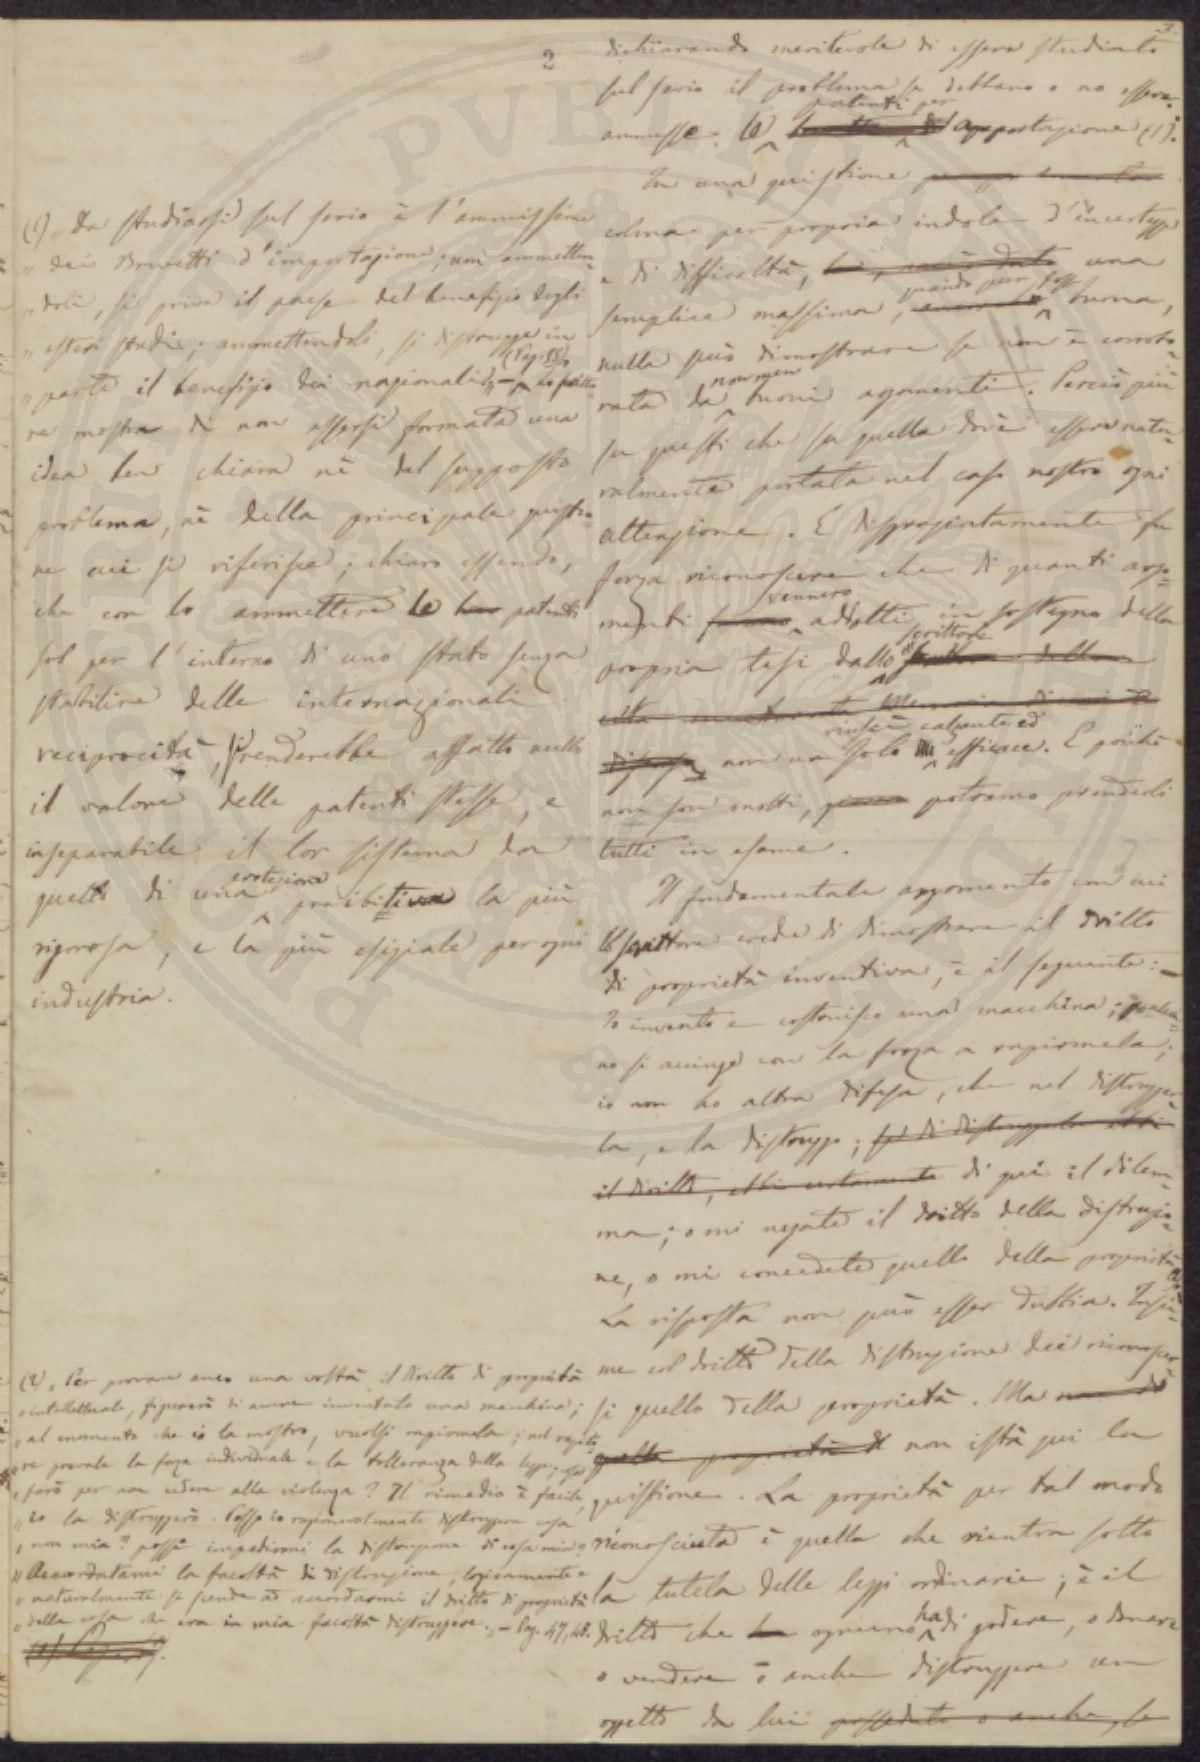 2
3.
dichiarando meritevole di essere studiato
sul serio il problema se debbano o no essere
patenti per
ammesse le importazione (1).
In una quistione
colma per propria indole d'incertezze
e di difficoltà, una
quando pur fosse
semplice massima, buona,
nulla può dimostrare se non è corrobo=
rata da non men buoni argomenti. Perciò più
su questi che su quella dov'è essere natu=
ralmente portata nel caso nostro ogni
attenzione. E disgraziatamente fa
forza riconoscere che di quanti argo=
menti vennero addotti in sostegno della
propria tesi dallo scrittore
riuscì calzante ed
non un solo efficace. E poiché
non son molti, potremo prenderli
tutti in esame.
Il fondamentale argomento con cui
lo scrittore crede di dimostrare il dritto
di proprietà inventiva, è il seguente: —
Io invento e costruisco una macchina; qualcu=
no si accinge con la forza a rapirmela;
io non ho altra difesa, che nel distrugger=
la, e la distruggo; di qui il dilem=
ma; o mi negate il dritto della distruzio=
ne, o mi concedete quello della proprietà (2)
La risposta non può esser dubbia. Insie=
me col dritto della distruzione dee riconoscer=
si quello della proprietà. Ma
non istà qui la
quistione. La proprietà per tal modo
riconosciuta è quella che rientra sotto
la tutela delle leggi ordinarie; è il
dritto che ognuno ha di godere, o donare
o vendere o anche distruggere un
oggetto da lui
(1) „ Da studiarsi sul serio è l'ammissione
„ dei Brevetti d'importazione; non ammetten=
„ doli, si priva il paese del benefizio degli
„ esteri studii; ammettendoli, si distrugge in
„ parte il benefizio dei nazionali „ — Lo scritto=
re mostra di non essersi formata una
idea ben chiara nè del supposto
problema, nè della principale quistio=
ne cui si riferisce; chiaro essendo,
che con lo ammettere le patenti
sol per l'interno di uno stato senza
stabilire delle internazionali
reciprocità, si renderebbe affatto nullo
il valore delle patenti stesse, e
inseparabile il lor sistema da
quello di una protezione proibitiva la più
rigorosa, e la più esiziale per ogni
industria.
(2) „ Per provare anco una volta il dritto di proprietà
„ intellettuale, figurerò di avere inventato una macchina;
„ al momento che io la mostro, vuolsi rapirmela; nel rapito=
„ re prevale la forza individuale e la tolleranza della legge; che
„ farò per non cedere alla violenza? Il rimedio è facile,
„ io la distruggerò. Posso io ragionevolmente distruggere cosa
„ non mia? possi impedirmi la distruzione di cosa mia?
„ Accordatami la facoltà di distruzione, logicamente e
„ naturalmente si scende ad accordarmi il dritto di proprietà
„ della cosa che era in mia facoltà distruggere. „ — Pag. 47, 48.